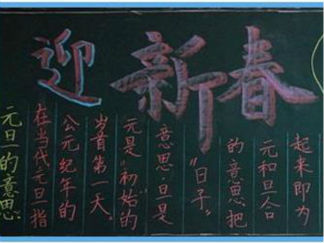 迎新春
元旦的意思
在当代元旦一指
公元纪年的
岁首第一天。
元是“初始”的
意思,旦是
“日子”
的意思。把
元和旦合
起来即为